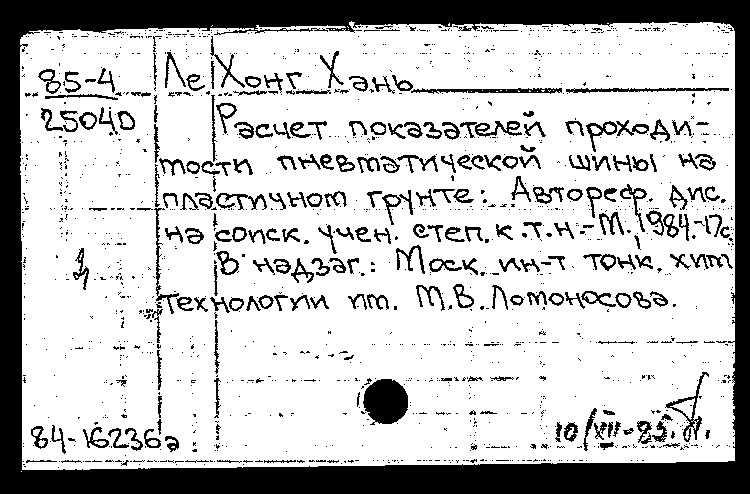 85-4
25040
Ле Хонг Хань
Расчет показателей проходи-
мости пневматической шины на
пластичном грунте: Автореф. дис.
на соиск. учен. степ. к.т.н.-М., 1984.-17с
В надзаг.: Моск. ин-т тонк. хим
технологии им. М.В. Ломоносова.
84-16236а
10/XII-85.